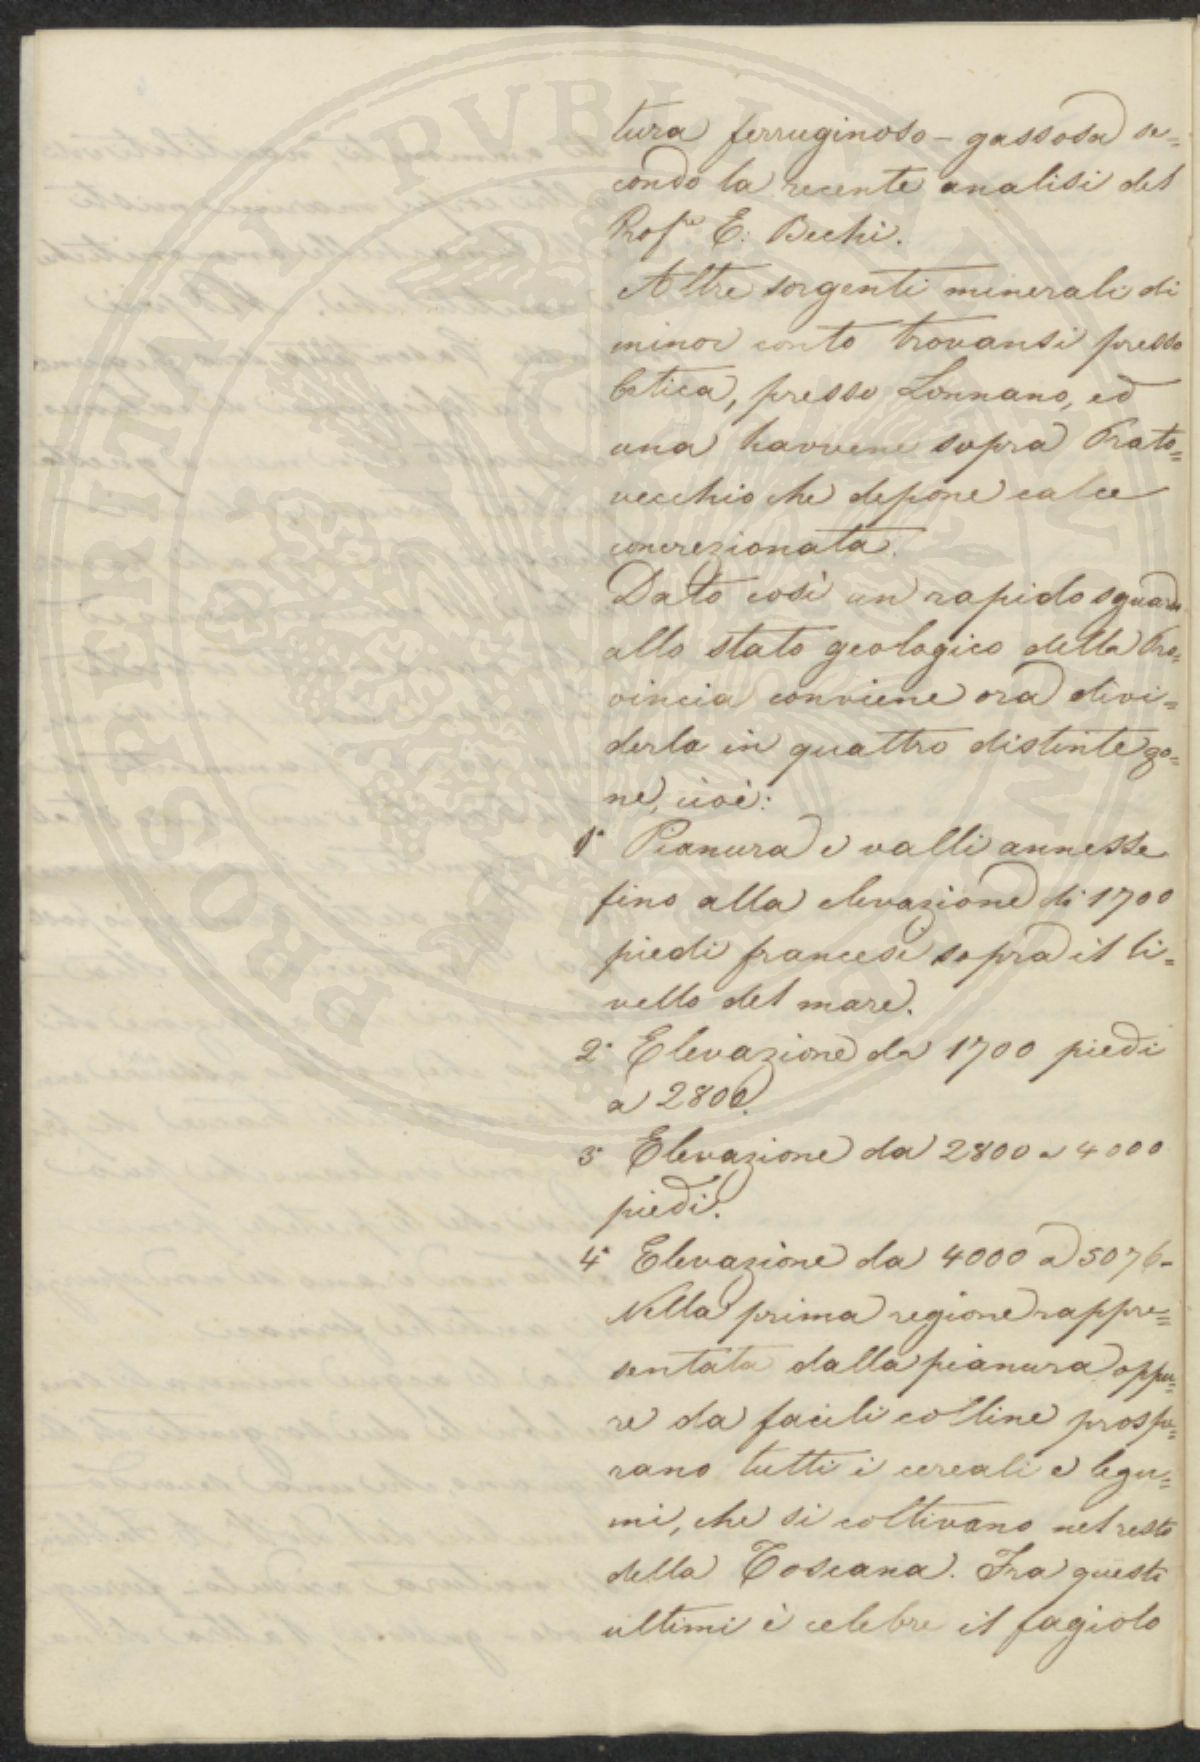 tura ferruginoso-gassosa se=
condo la recente analisi del
Prof.re E. Bechi.
Altre sorgenti minerali di
minor conto trovansi presso
Cetica, presso Lonnano, ed
una havvene sopra Prato=
vecchio che depone calce
concrezionata.
Dato così un rapido sguardo
allo stato geologico della Pro=
vincia conviene ora divi=
derla in quattro distinte zo=
ne, cioè:
1° Pianura e valli annesse
fino alla elevazione di 1700
piedi francesi sopra il li=
vello del mare.
2° Elevazione da 1700 piedi
a 2800.
3° Elevazione da 2800 a 4000
piedi.
4° Elevazione da 4000 a 5076-
Nella prima regione rappre=
sentata dalla pianura oppu=
re da facili colline prospe=
rano tutti i cereali e legu=
mi, che si coltivano nel resto
della Toscana. Fra questi
ultimi è celebre il fagiolo